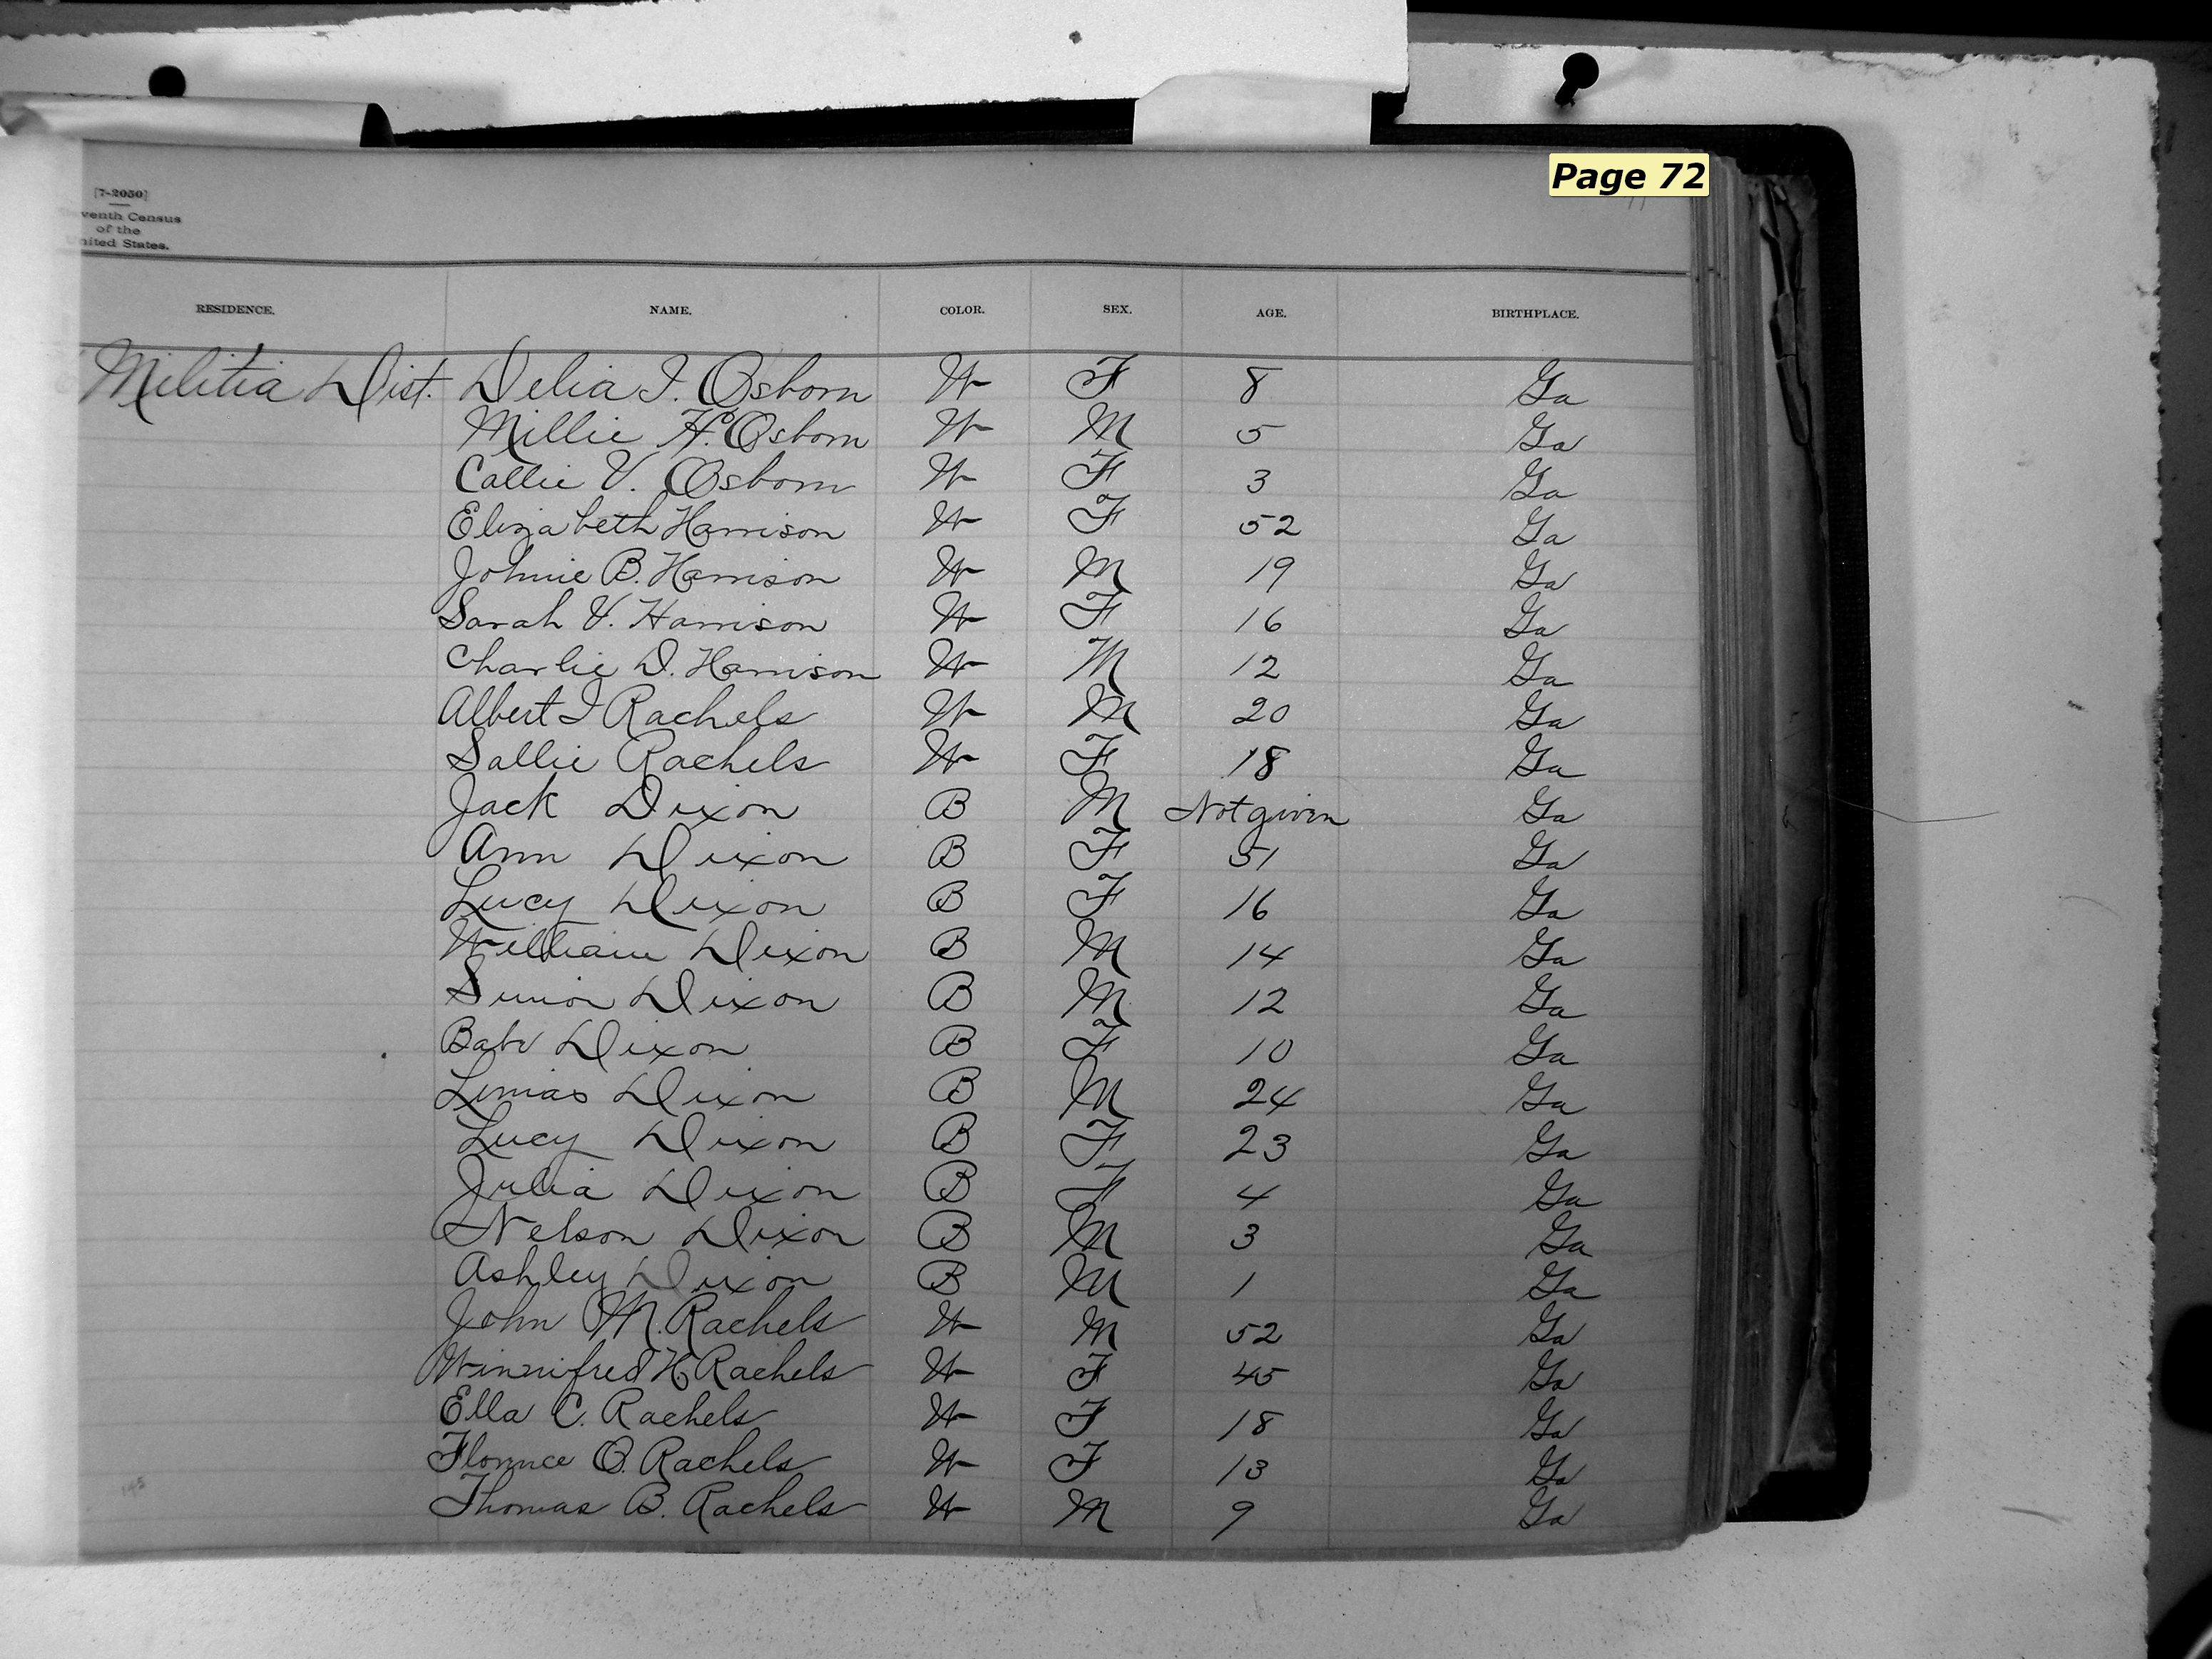 Page 72
[7-2050]
venth Census
of the
nited States.
RESIDENCE. NAME. COLOR. SEX. AGE. BIRTHPLACE.
Militia Dist. Delia I. Osborn W F 8 Ga
Millie H. Osborn W M 5 Ga
Callie V. Osborn W F 3 Ga
Elizabeth Harrison W F 52 Ga
Johnie B. Harrison W M 19 Ga
Sarah V. Harrison W F 16 Ga
Charlie D. Harrison W M 12 Ga
Albert I Rachels W M 20 Ga
Sallie Rachels W F 18 Ga
Jack Dixon B M Not given Ga
Ann Dixon B F 51 Ga
Lucy Dixon B F 16 Ga
William Dixon B M 14 Ga
Simon Dixon B M 12 Ga
Babe Dixon B F 10 Ga
Dixon B M 24 Ga
Lucy Dixon B F 23 Ga
Julia Dixon B F 4 Ga
Nelson Dixon B M 3 Ga
Ashley Dixon B M 1 Ga
John M. Rachels W M 52 Ga
Winnifred H Rachels W F 45 Ga
Ella C. Rachels W F 18 Ga
Florence O. Rachels W F 13 Ga
Thomas B. Rachels W M 9 Ga